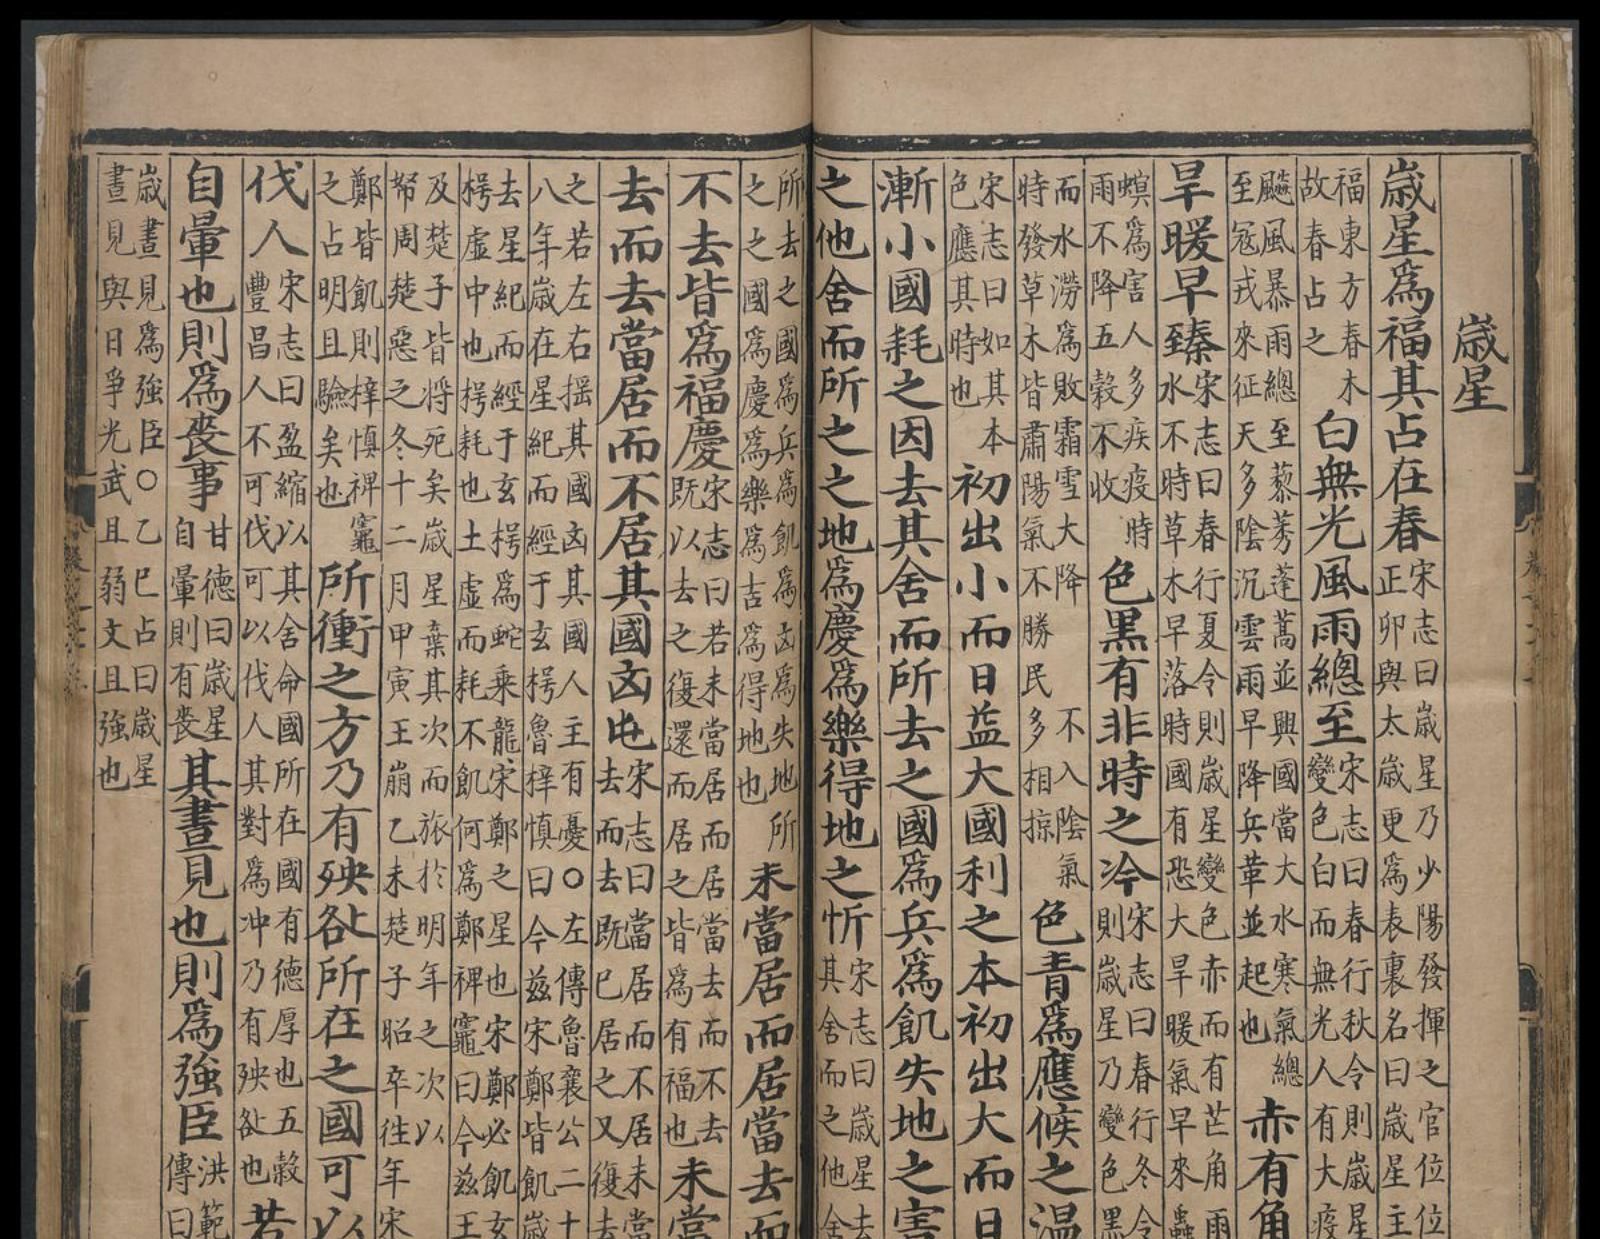 歲星
歲星爲福其占在春
宋志曰歲星乃少陽發揮之官位位
正卯與太歲更爲表裏名曰歲星主
福東方春木
故春占之
白無光風雨總至
宋志曰春行秋令則歲星
變色白而無光人有大疫
飈風暴雨總至藜莠蓬蒿並興國當大水寒氣總
至寇戎來征天多陰沉雲雨早降兵革並起也
赤有角
旱暖早臻
宋志曰春行夏令則歲星變色赤而有芒角雨
水不時草木早落時國有恐大旱暖氣早來蟲
螟爲害人多疾疫時
雨不降五穀不收
色黑有非時之冷
宋志曰春行冬令
則歲星乃變色黑
而水潦爲敗霜雪大降不入陰氣
時發草木皆肅陽氣不勝民多相掠
色青爲應候之溫
宋志曰如其本
色應其時也
初出小而日益大國利之本初出大而日
漸小國耗之因去其舍而所去之國爲兵爲飢失地之害
之他舍而所之之地爲慶爲樂得地之忻
宋志曰歲星去
其舍而之他舍
所去之國爲兵爲飢爲凶爲失地所
之之國爲慶爲樂爲吉爲得地也
未當居而居當去而
不去皆爲福慶
宋志曰若未當居而居當去而不去
既以去之復還而居之皆爲有福也
未當
去而去當居而不居其國凶屯
宋志曰當居而不居未當
去而去既已居之又復去
之若左右揺其國凶其國人主有憂○左傳魯襄公二十
八年歲在星紀而經于玄枵魯梓慎曰今茲宋鄭皆飢歲
去星紀而經于玄枵爲蛇乘龍宋鄭之星也宋鄭必飢玄
枵虛中也枵耗也土虛而耗不飢何爲鄭裨竈曰今茲王
及楚子皆將死矣歲星棄其次而旅於明年之次以
帑周楚惡之冬十二月甲寅王崩乙未楚子昭卒往年宋
鄭皆飢則梓慎裨竈
之占明且驗矣也
所衝之方乃有殃咎所在之國可以
伐人
宋志曰盈縮以其舍命國所在國有德厚也五穀
豐昌人不可伐可以伐人其對爲冲乃有殃咎也
若
自暈也則爲喪事
甘德曰歲星
自暈則有喪
其晝見也則爲強臣
洪範
傳曰
歲晝見爲強臣○乙巳占曰歲星
晝見與日爭光武且弱文且強也